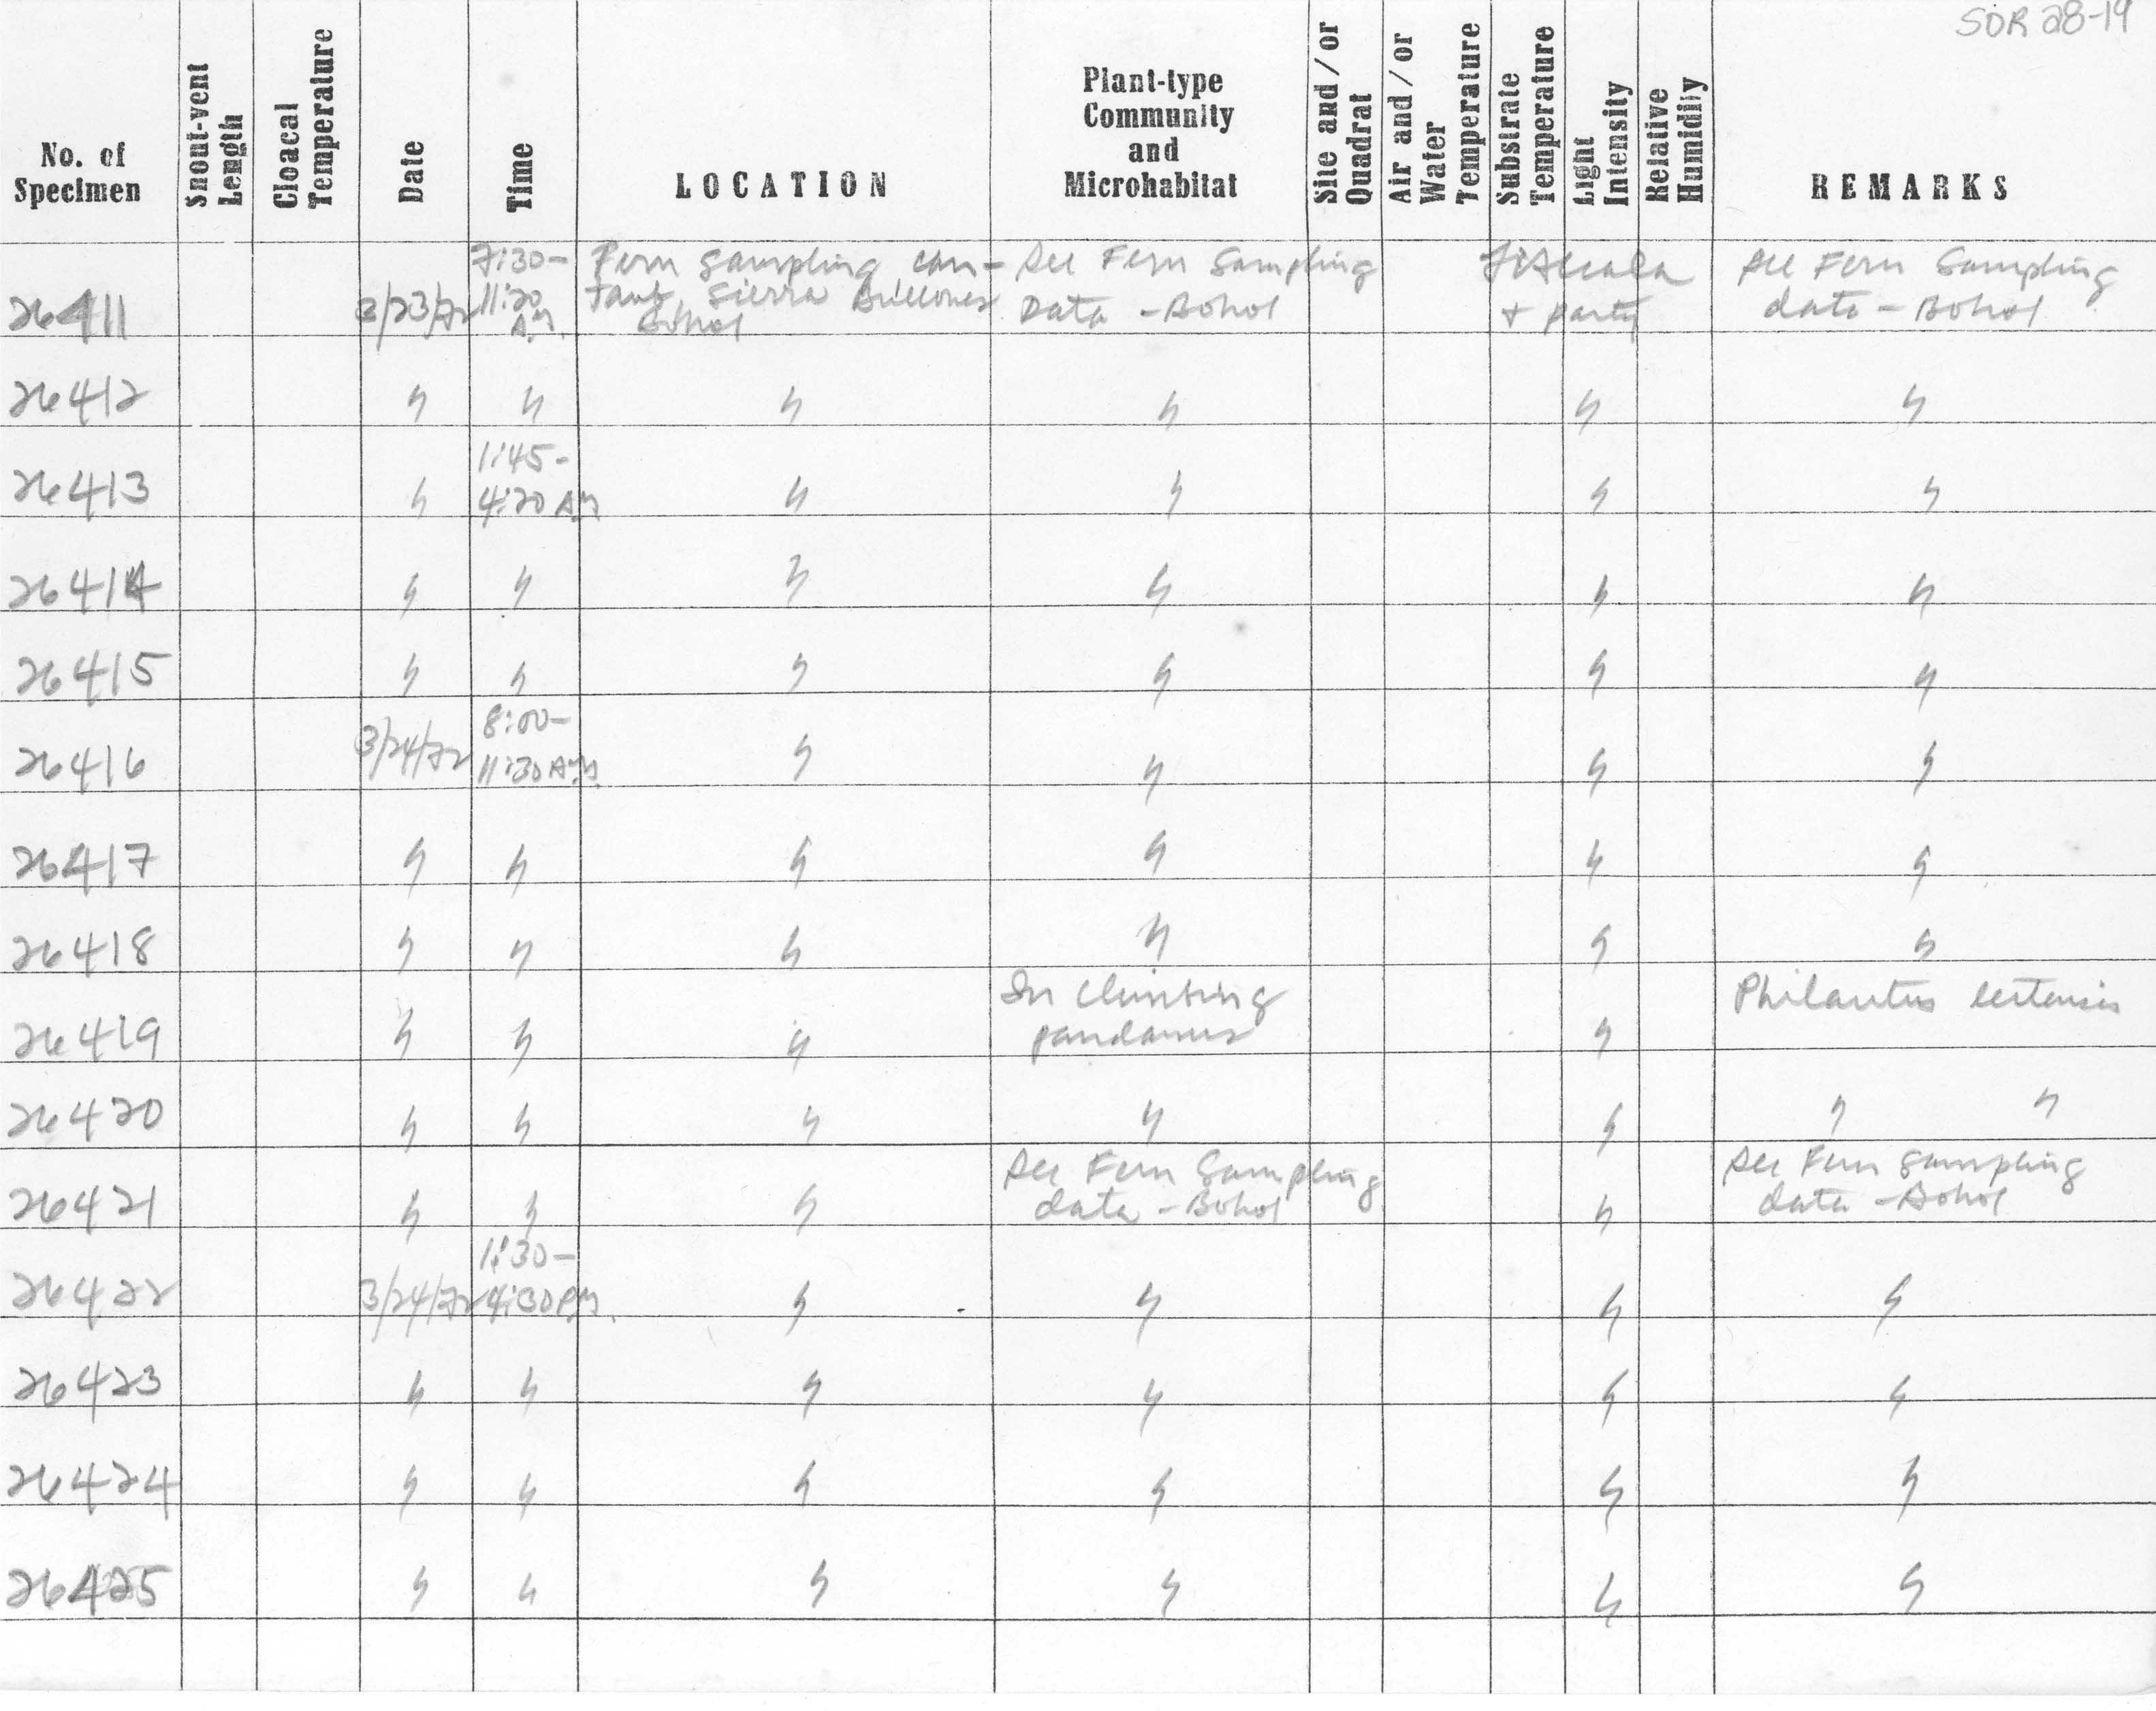 SDR 28-19
No. of Specimen Snout-vent Length Cloacal Temperature Date Time LOCATION Plant-type Community and Microhabitat Site and/or Quadrat Air and/or Water Temperature Substrate Temperature Light Intensity Relative Humidity REMARKS
26411 3/23/72 7:30-11:20 AM. Fern sampling Sierra Bullones Bohol See Fern Sampling Data - Bohol Alcala + party See Fern Sampling data - Bohol
26412 " " " " " "
26413 " 1:45-4:20 AM " " " "
26414 " " " " " "
26415 " " " " " "
26416 3/24/72 8:00-11:30 AM. " " " "
26417 " " " " " "
26418 " " " " " "
26419 " " " In climbing pandanus " Philautus
26420 " " " " " " "
26421 " " " See Fern Sampling data - Bohol " See Fern Sampling data - Bohol
26422 3/24/72 1:30-4:30 PM. " " " "
26423 " " " " " "
26424 " " " " " "
26425 " " " " " "